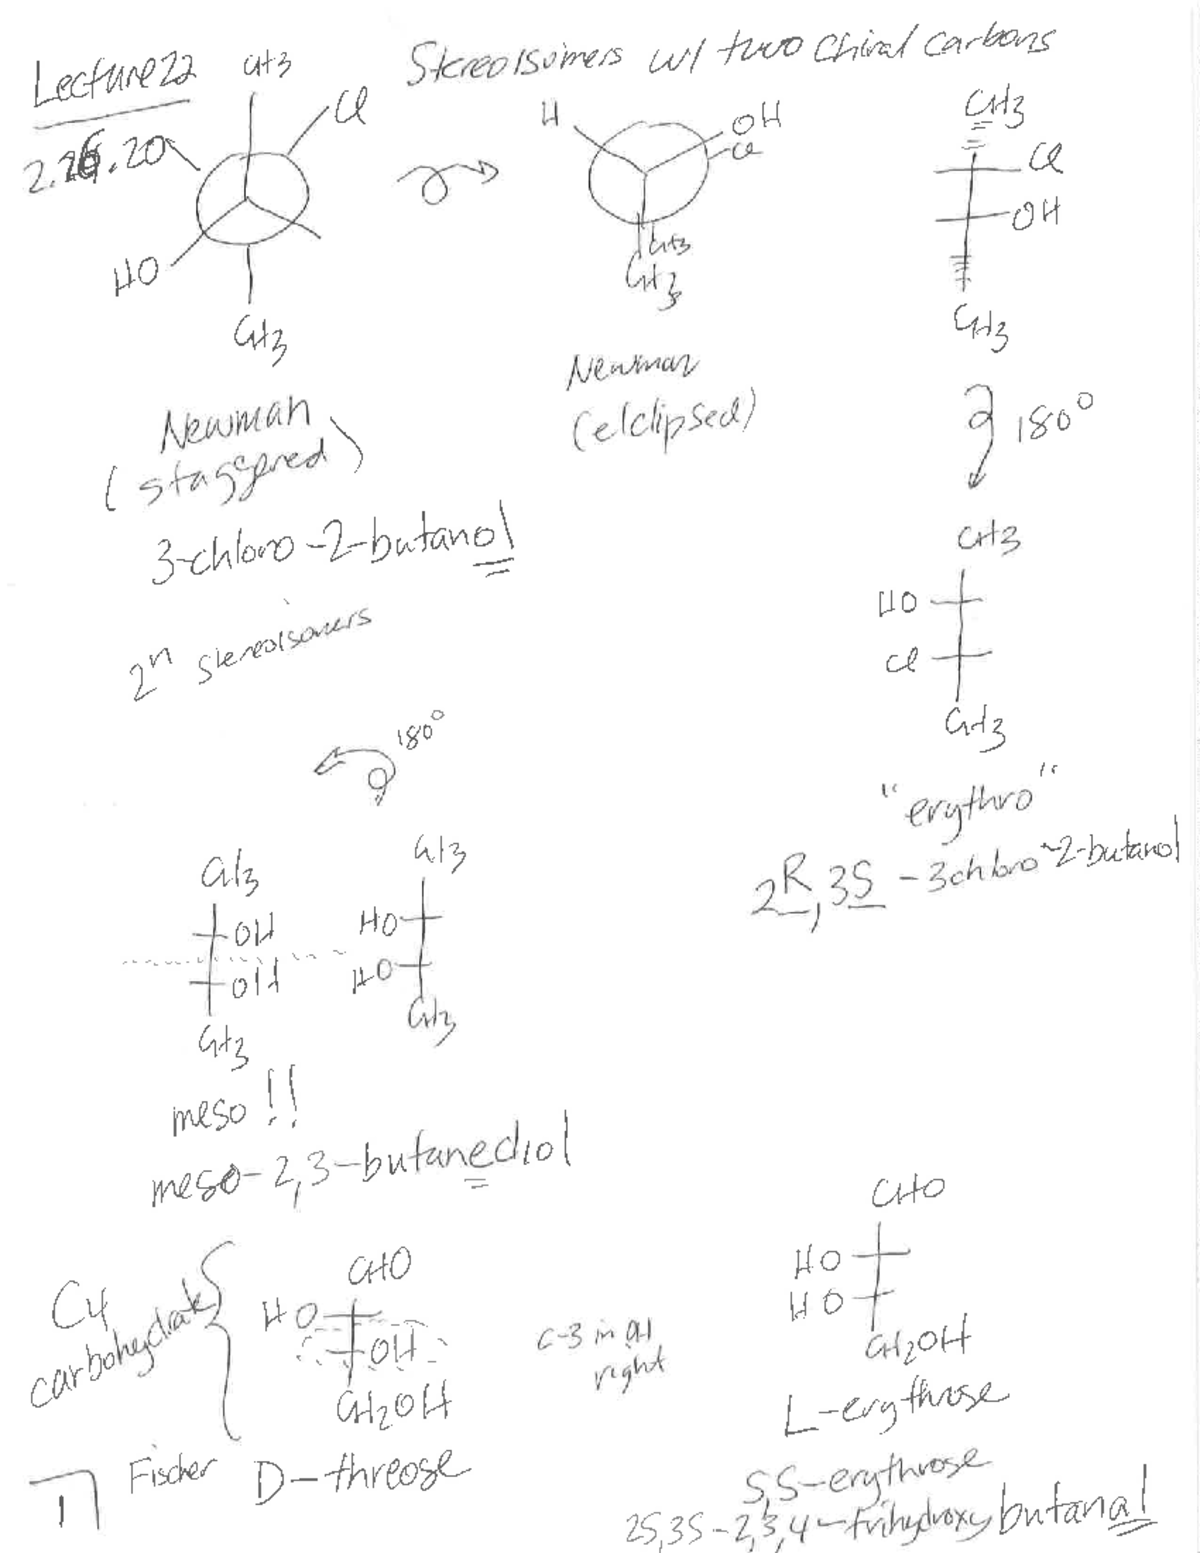 Lecture 22
Stereoisomers w/ two chiral carbons
2.26.20
CH3
Cl
HO
CH3
H
OH
Cl
CH3
CH3
CH3
Cl
OH
CH3
Newman
(staggered)
Newman
(elclipsed)
180°
3-chloro-2-butanol
2^n stereoisomers
CH3
HO
Cl
CH3
"erythro"
2R,3S-3chloro-2-butanol
180°
CH3
OH
OH
CH3
CH3
HO
HO
CH3
meso!!
meso-2,3-butanediol
C4
carbohydrate
CHO
HO
OH
CH2OH
Fischer D-threose
C-3 in OH
right
CHO
HO
HO
CH2OH
L-erythrose
S,S-erythrose
2S,3S-2,3,4-trihydroxybutanal
1